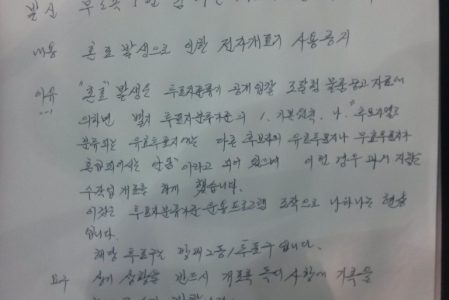 내용 혼표 발생으로 인한 전자개표기 사용중지
이유 "혼표" 발생은 투표지분류기 공개입찰 조달청 물품공고 자료에
의하면 별지 투표지분류기준의 1. 기본원칙. 나. "후보자별로
분류되는 유효투표지에는 다른 후보자의 유효투표지나 무효투표지가
혼입되어서는 안됨" 이라고 되어 있으며 이런 경우 과거 지침은
수작업 개표를 하게 했습니다.
이것은 투표지분류기준 운용프로그램 조작으로 나타나는 현상
입니다.
해당 투표구는 2동1투표구 입니다.
요구 상기 상황을 반드시 개표록 특이사항에 기록을